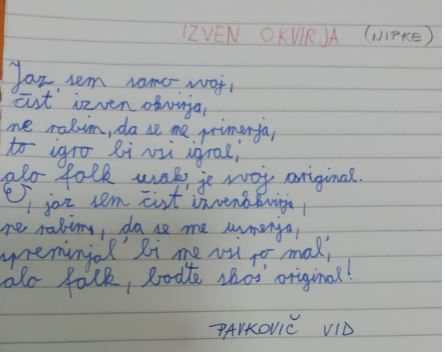 IZVEN OKVIRJA (NIPKE)
Jaz sem samo svoj,
čist' izven okvirja,
ne rabim, da se me primerja,
to igro bi vsi igral',
alo folk usak je svoj original.
U, jaz sem čist izven okvirja,
ne rabim, da se me usmerja,
spreminjal' bi me vsi po mal',
alo folk, bod'te skos' original!
PAVKOVIČ VID